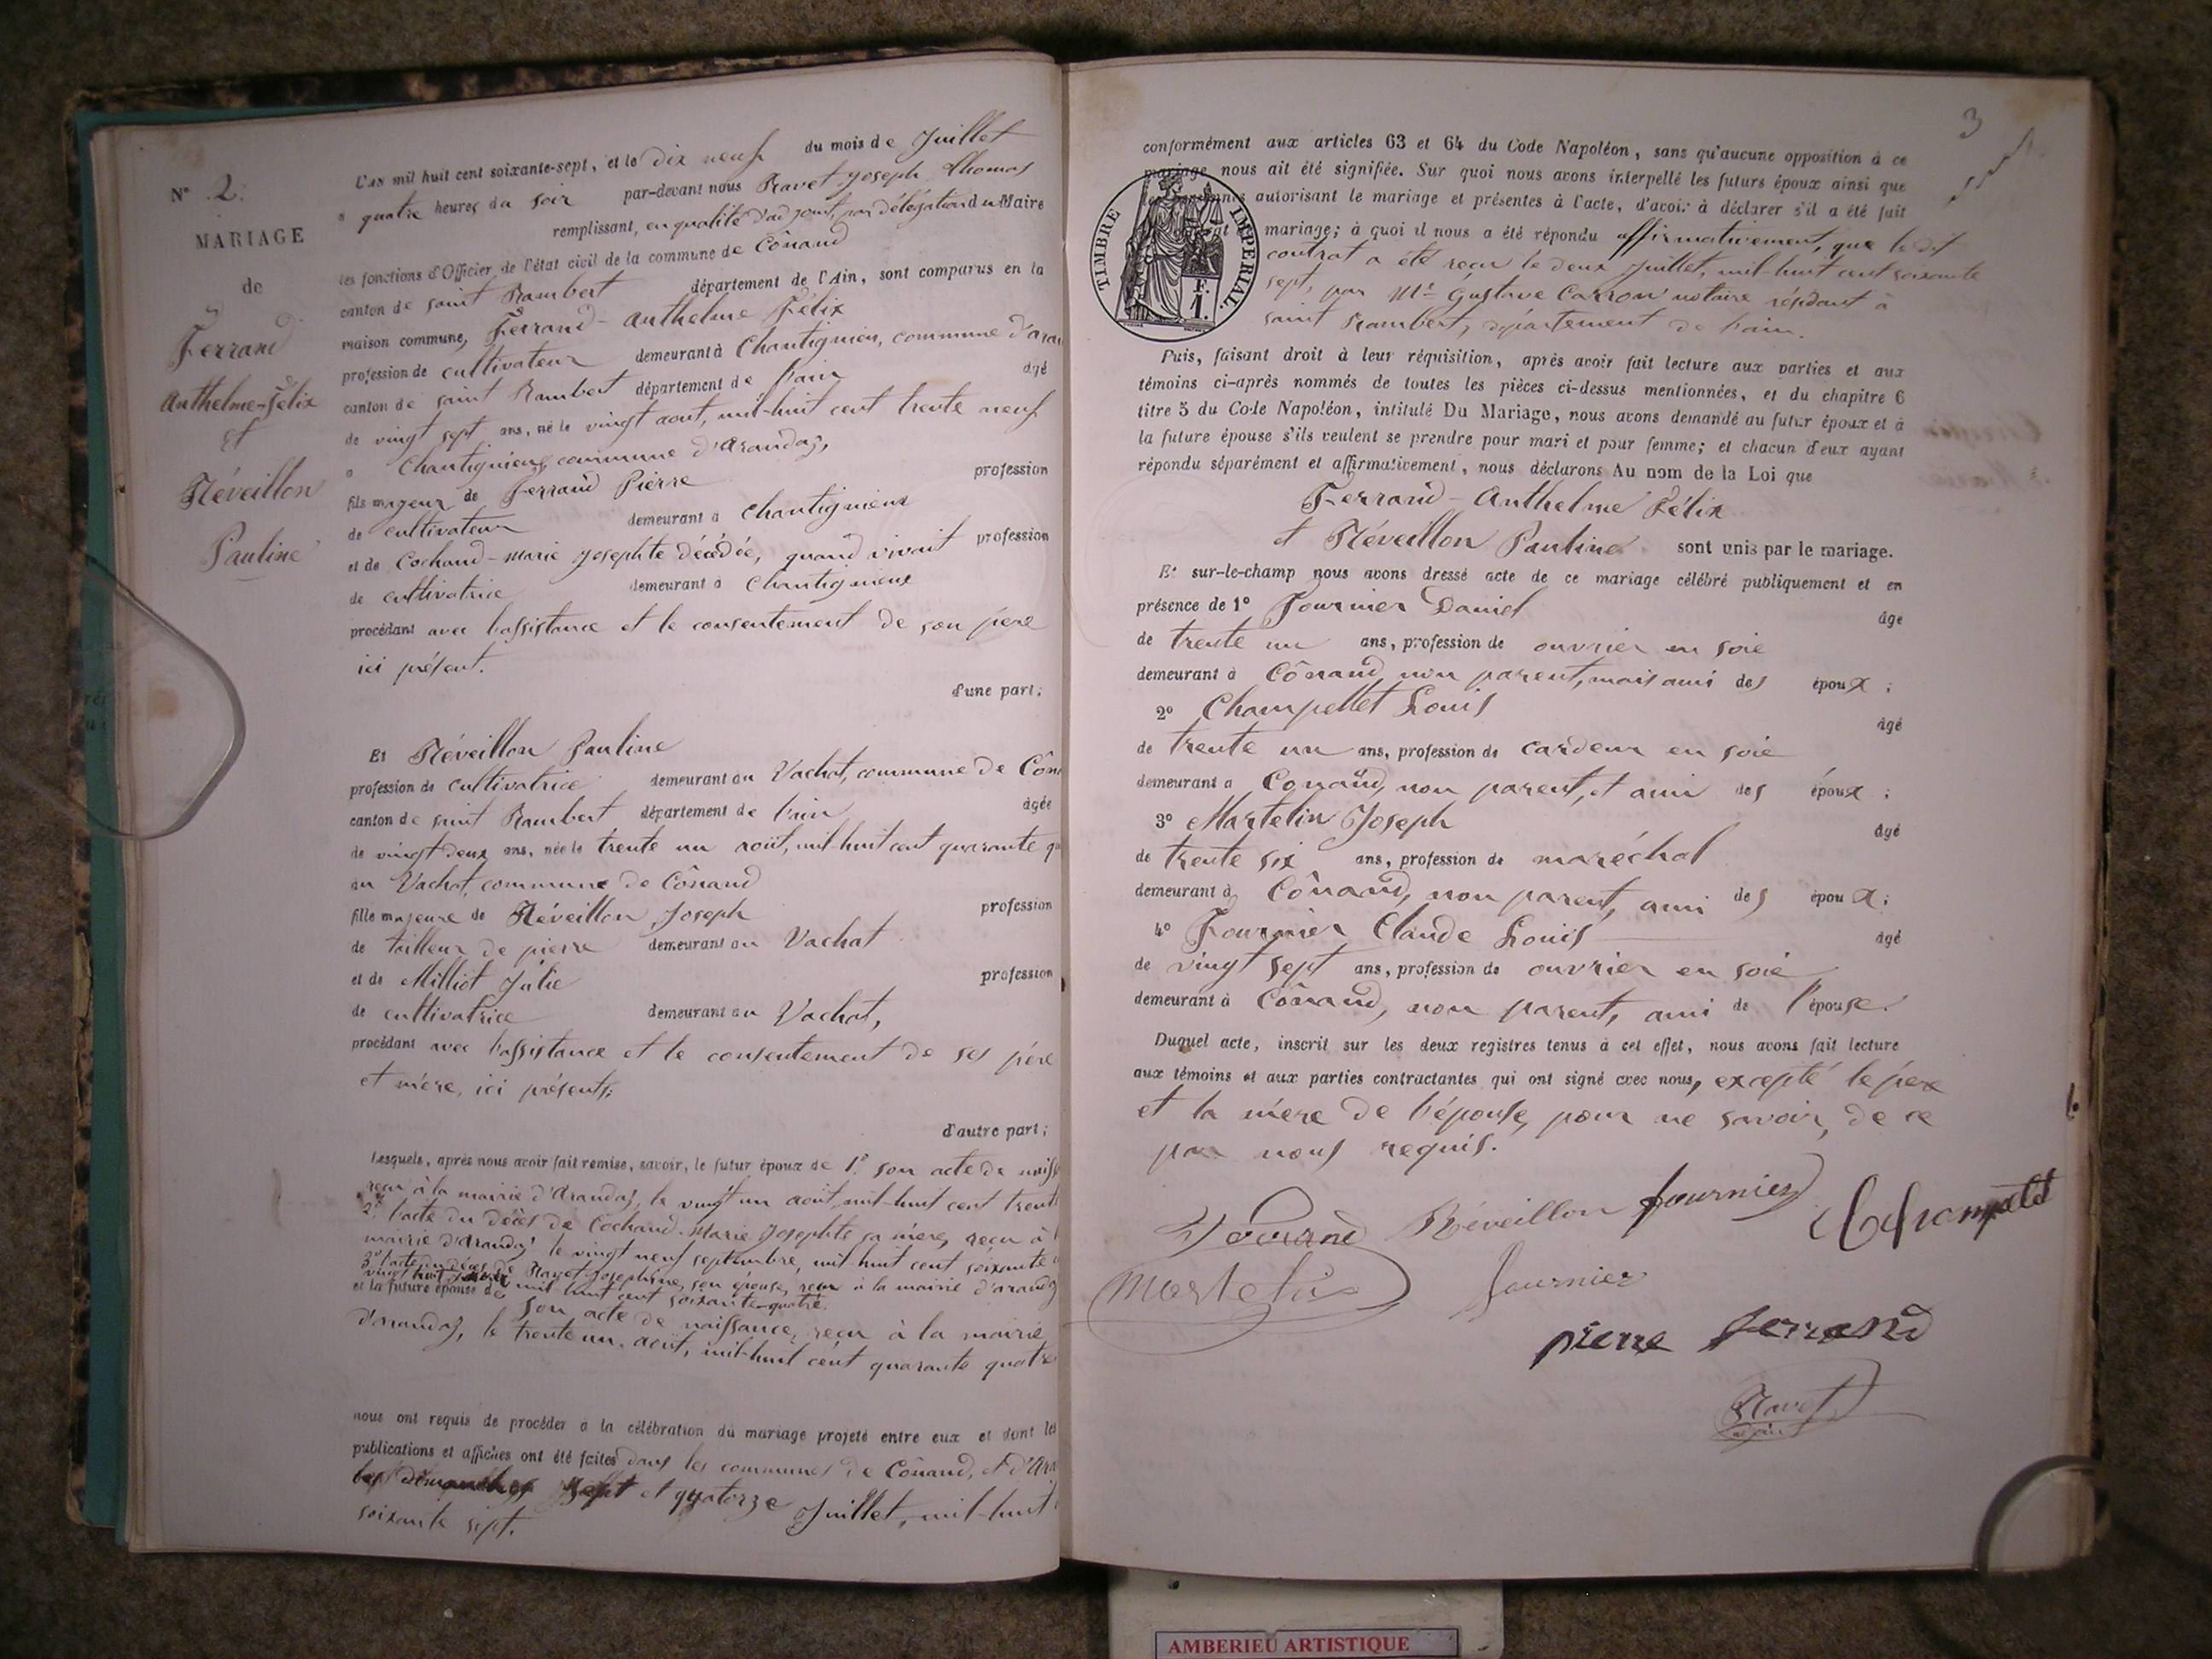 N° 2.
MARIAGE
de
Ferrand
Anthelme-Félix
et
Réveillon
Pauline
L'AN mil huit cent soixante-sept, et le dix neuf du mois de Juillet
à quatre heures du soir par-devant nous Ravet Joseph Thomas
remplissant, en qualité d'adjoint, par délégation du Maire
les fonctions d'Officier de l'état civil de la commune de Cônand
canton de saint Rambert département de l'Ain, sont comparus en la
maison commune, Ferrand - Anthelme Félix
profession de cultivateur demeurant à Chantignieu, commune d'
canton de saint Rambert département de l'ain âgé
de vingt sept ans, né le vingt aout, mil-huit cent trente neuf
à Chantignieux commune d'Arandaz,
fils majeur de Ferrand Pierre profession
de cultivateur demeurant à Chantignieux
et de Cochand - marie Josephte décédée, quand vivait profession
de cultivatrice demeurant à Chantignieux
procédant avec l'assistance et le consentement de son père
ici présent.
d'une part;
Et Réveillon Pauline
profession de cultivatrice demeurant au Vachat, commune de
canton de saint Rambert département de l'ain âgée
de vingt deux ans, née le trente un août, mil-huit cent quarante
au Vachat, commune de Cônand
fille majeure de Réveillon Joseph profession
de tailleur de pierre demeurant au Vachat
et de Milliot Julie profession
de cultivatrice demeurant au Vachat,
procédant avec l'assistance et le consentement de ses père
et mère, ici présents;
d'autre part;
Lesquels, après nous avoir fait remise, savoir, le futur époux de 1° son acte de
reçu à la mairie d'Arandaz, le vingt un août, mil-huit cent
2° l'acte du décès de Cochand-Marie Josephte sa mère, reçu à
mairie d'Arandaz le vingt neuf septembre, mil-huit cent soixante
3° l'acte de décès de Ravet Josephine, son épouse, reçu à la mairie d'arandaz
vingt huit mil huit cent soixante-quatre.
et la future épouse de son acte de naissance, reçu à la mairie
d'arandaz, le trente un août, mil-huit cent quarante quatre
nous ont requis de procéder à la célébration du mariage projeté entre eux et dont les
publications et affiches ont été faites dans les communes de Cônand, et
les dimanches sept et quatorze Juillet, mil-huit
soixante sept.
3
conformément aux articles 63 et 64 du Code Napoléon, sans qu'aucune opposition à ce
mariage nous ait été signifiée. Sur quoi nous avons interpellé les futurs époux ainsi que
autorisant le mariage et présentes à l'acte, d'avoir à déclarer s'il a été fait
mariage; à quoi il nous a été répondu affirmativement, que le dit
contrat a été reçu le deux Juillet, mil-huit cent soixante
sept, par Me Gustave Carron notaire résidant à
saint Rambert, département de l'ain.
TIMBRE IMPERIAL.
F.
1.
Puis, faisant droit à leur réquisition, après avoir fait lecture aux parties et aux
témoins ci-après nommés de toutes les pièces ci-dessus mentionnées, et du chapitre 6
titre 5 du Code Napoléon, intitulé Du Mariage, nous avons demandé au futur époux et à
la future épouse s'ils veulent se prendre pour mari et pour femme; et chacun d'eux ayant
répondu séparément et affirmativement, nous déclarons Au nom de la Loi que
Ferrand - Anthelme Félix
et Réveillon Pauline sont unis par le mariage.
Et sur-le-champ nous avons dressé acte de ce mariage célébré publiquement et en
présence de 1° Fournier Daniel âgé
de trente un ans, profession de ouvrier en soie
demeurant à Cônand, non parent, mais ami des époux;
2° Champellet Louis âgé
de trente un ans, profession de cardeur en soie
demeurant à Conand, non parent, et ami des époux;
3° Martelin Joseph âgé
de trente six ans, profession de maréchal
demeurant à Cônand, non parent, ami des époux;
4° Fournier Claude Louis âgé
de vingt sept ans, profession de ouvrier en soie
demeurant à Cônand, non parent, ami de l'épouse.
Duquel acte, inscrit sur les deux registres tenus à cet effet, nous avons fait lecture
aux témoins et aux parties contractantes qui ont signé avec nous, excepté le père
et la mère de l'épouse, pour ne savoir, de ce
par nous requis.
Réveillon fournier
Martelin fournier
pierre ferrand
Ravet
adjoint
AMBERIEU ARTISTIQUE